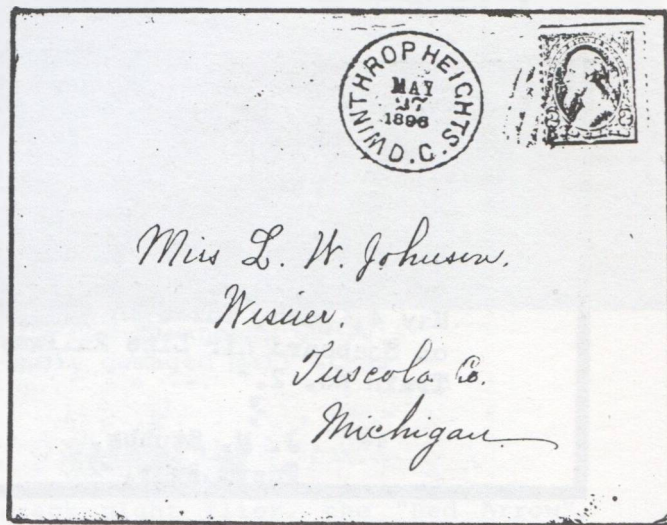 WINTHROP HEIGHTS.
D.C.
MAY
27
1896
Miss L. W. Johnson.
Wisner.
Tuscola Co.
Michigan